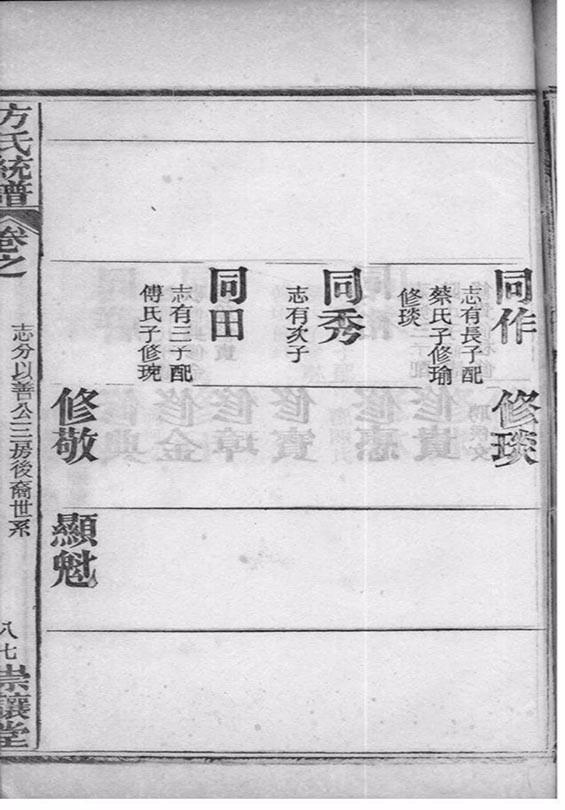 同作
志有長子配
蔡氏子修瑜
修琰
同秀
志有次子
同田
志有三子配
傅氏子修琬
修琰
修敬
顯魁
方氏統譜
卷之
志分以善公三房後裔世系
八七
崇讓堂